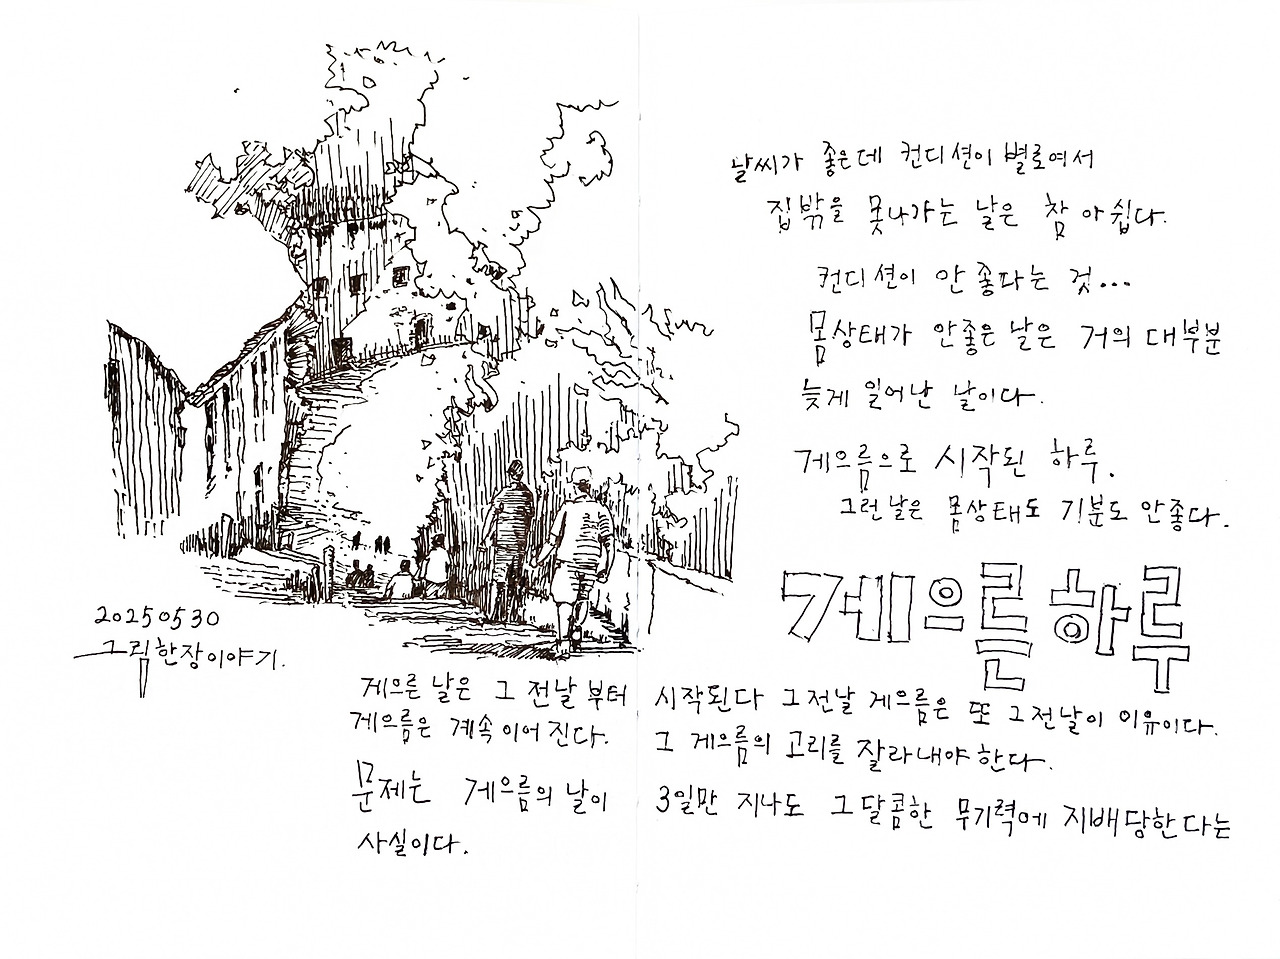 날씨가 좋은데 컨디션이 별로여서
집밖을 못나가는 날은 참 아쉽다.
컨디션이 안 좋다는 것...
몸상태가 안좋은 날은 거의 대부분
늦게 일어난 날이다.
게으름으로 시작된 하루.
그런 날은 몸상태도 기분도 안좋다.
게으른 하루
20250530
그림한장이야기.
게으른 날은 그 전날 부터 시작된다 그전날 게으름은 또 그전날이 이유이다.
게으름은 계속 이어진다. 그 게으름의 고리를 잘라내야 한다.
문제는 게으름의 날이 3일만 지나도 그 달콤한 무기력에 지배당한다는
사실이다.